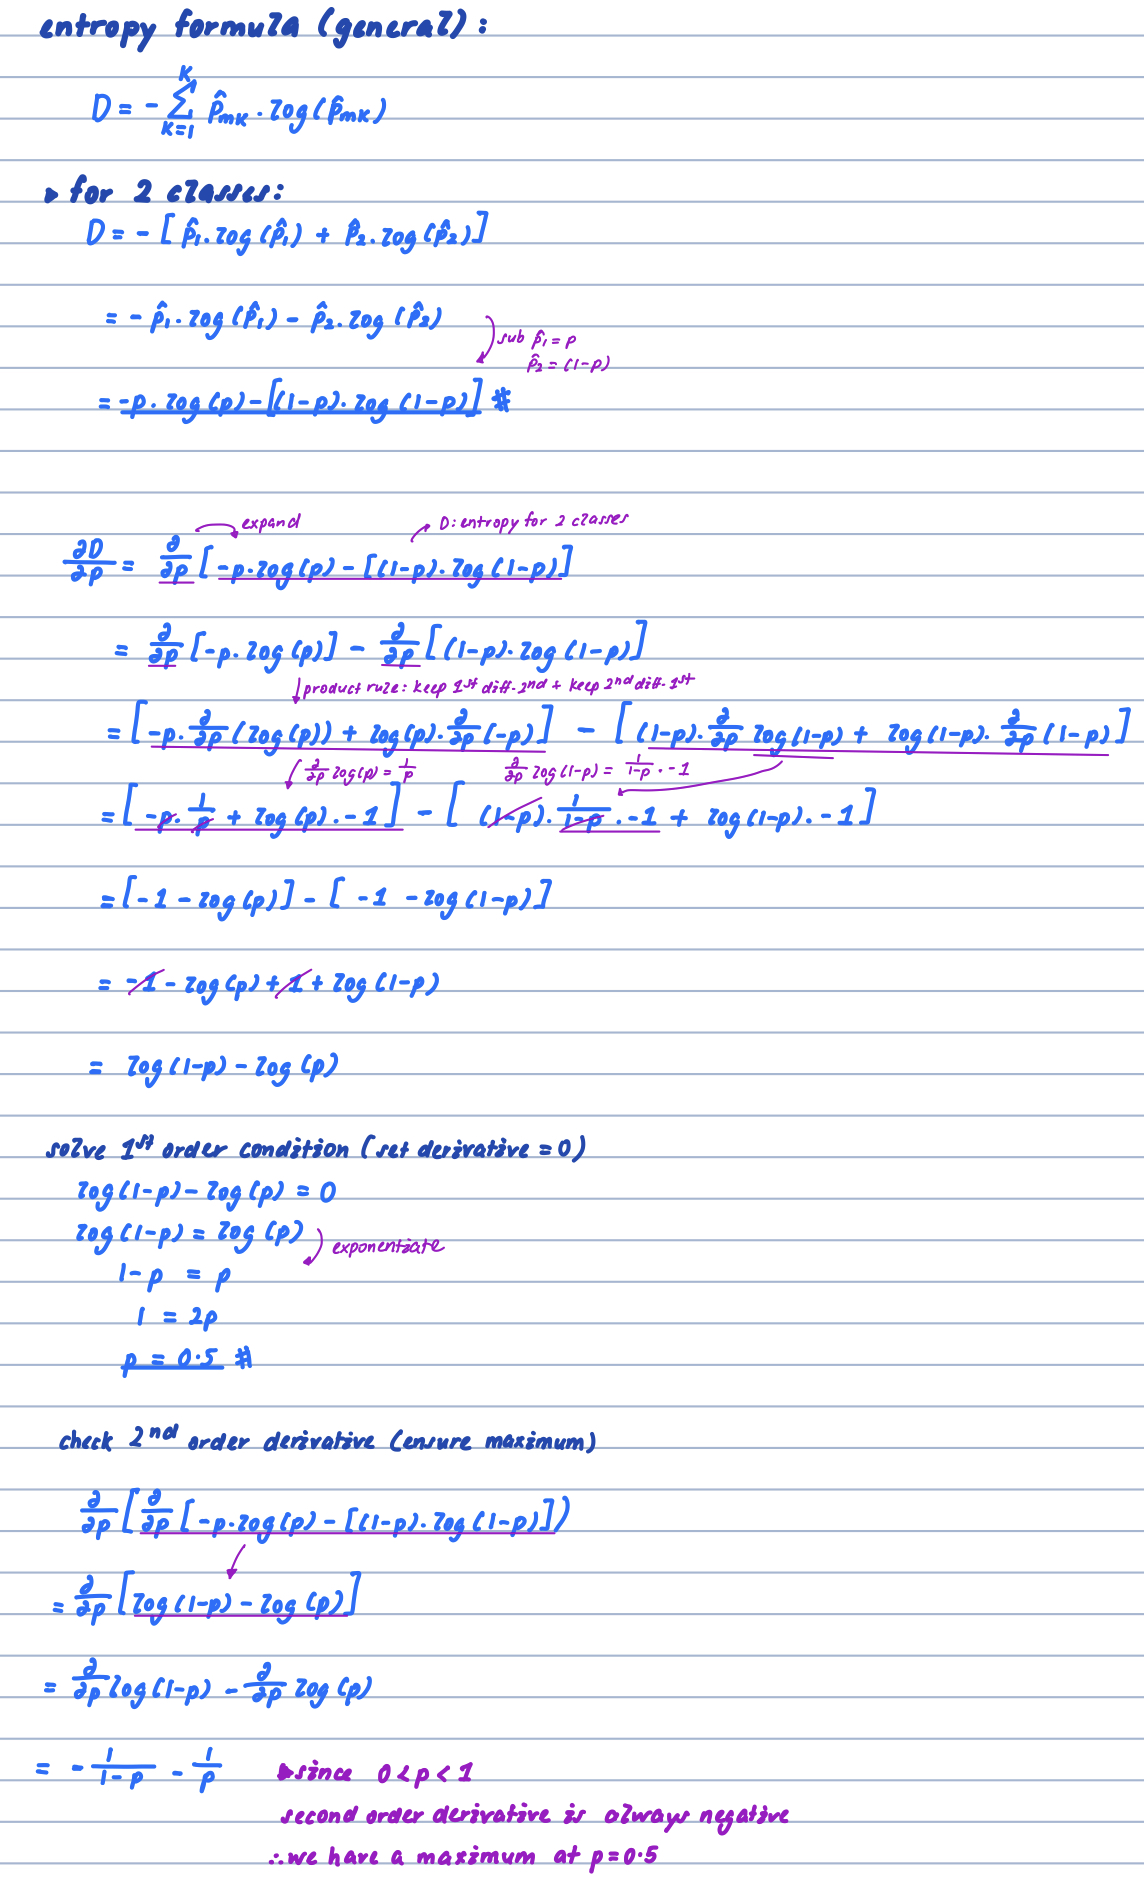 entropy formula (general):
D = - Σ_{K=1}^{K} p̂_mK · log(p̂_mK)
▸ for 2 classes:
D = - [ p̂₁ · log(p̂₁) + p̂₂ · log(p̂₂) ]
= - p̂₁ · log(p̂₁) - p̂₂ · log(p̂₂)
sub p̂₁ = p
p̂₂ = (1-p)
= -p · log(p) - [(1-p) · log(1-p)] #
expand
D: entropy for 2 classes
∂D/∂p = ∂/∂p [ -p · log(p) - [(1-p) · log(1-p)]
= ∂/∂p [-p · log(p)] - ∂/∂p [(1-p) · log(1-p)]
product rule: keep 1st diff. 2nd + keep 2nd diff. 1st
= [ -p · ∂/∂p (log(p)) + log(p) · ∂/∂p (-p) ] - [ (1-p) · ∂/∂p log(1-p) + log(1-p) · ∂/∂p (1-p) ]
∂/∂p log(p) = 1/p
∂/∂p log(1-p) = 1/1-p · -1
= [ -p · 1/p + log(p) · -1 ] - [ (1-p) · 1/1-p · -1 + log(1-p) · -1 ]
= [ -1 - log(p) ] - [ -1 - log(1-p) ]
= -1 - log(p) + 1 + log(1-p)
= log(1-p) - log(p)
solve 1st order condition (set derivative = 0)
log(1-p) - log(p) = 0
log(1-p) = log(p)
exponentiate
1-p = p
1 = 2p
p = 0.5 #
check 2nd order derivative (ensure maximum)
∂/∂p [ ∂/∂p [ -p · log(p) - [(1-p) · log(1-p)] ] )
= ∂/∂p [ log(1-p) - log(p) ]
= ∂/∂p log(1-p) - ∂/∂p log(p)
= - 1/1-p - 1/p
▸ since 0 < p < 1
second order derivative is always negative
∴ we have a maximum at p = 0.5